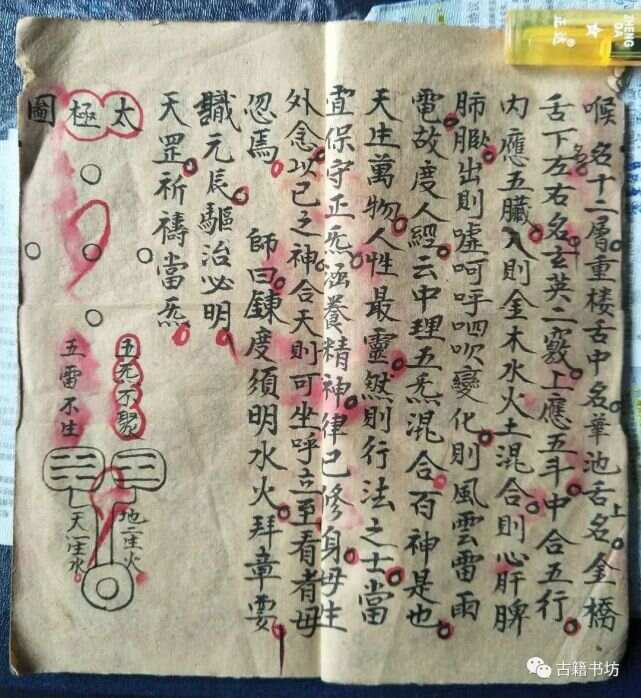 喉名十二層重楼舌中名華池舌上名金橋
舌下左右名玄英二竅上應五斗中合五行
内應五臟入則金木水火土混合則心肝脾
肺腦出則噓呵呼呬吹變化則風雲雷雨
電故度人經云中理五炁混合百神是也
天生萬物人性最靈然則行法之士當
宜保守正炁涵養精神律己修身毋生
外念以己之神合天則可坐呼立至看者毋
忽焉 師曰鍊度須明水火拜章要
職元辰驅治必明
天罡祈禱當炁
太極圖
五炁不聚
五雷不生
地二生火
天一生水
ZHENG
DA
正达
古籍书坊